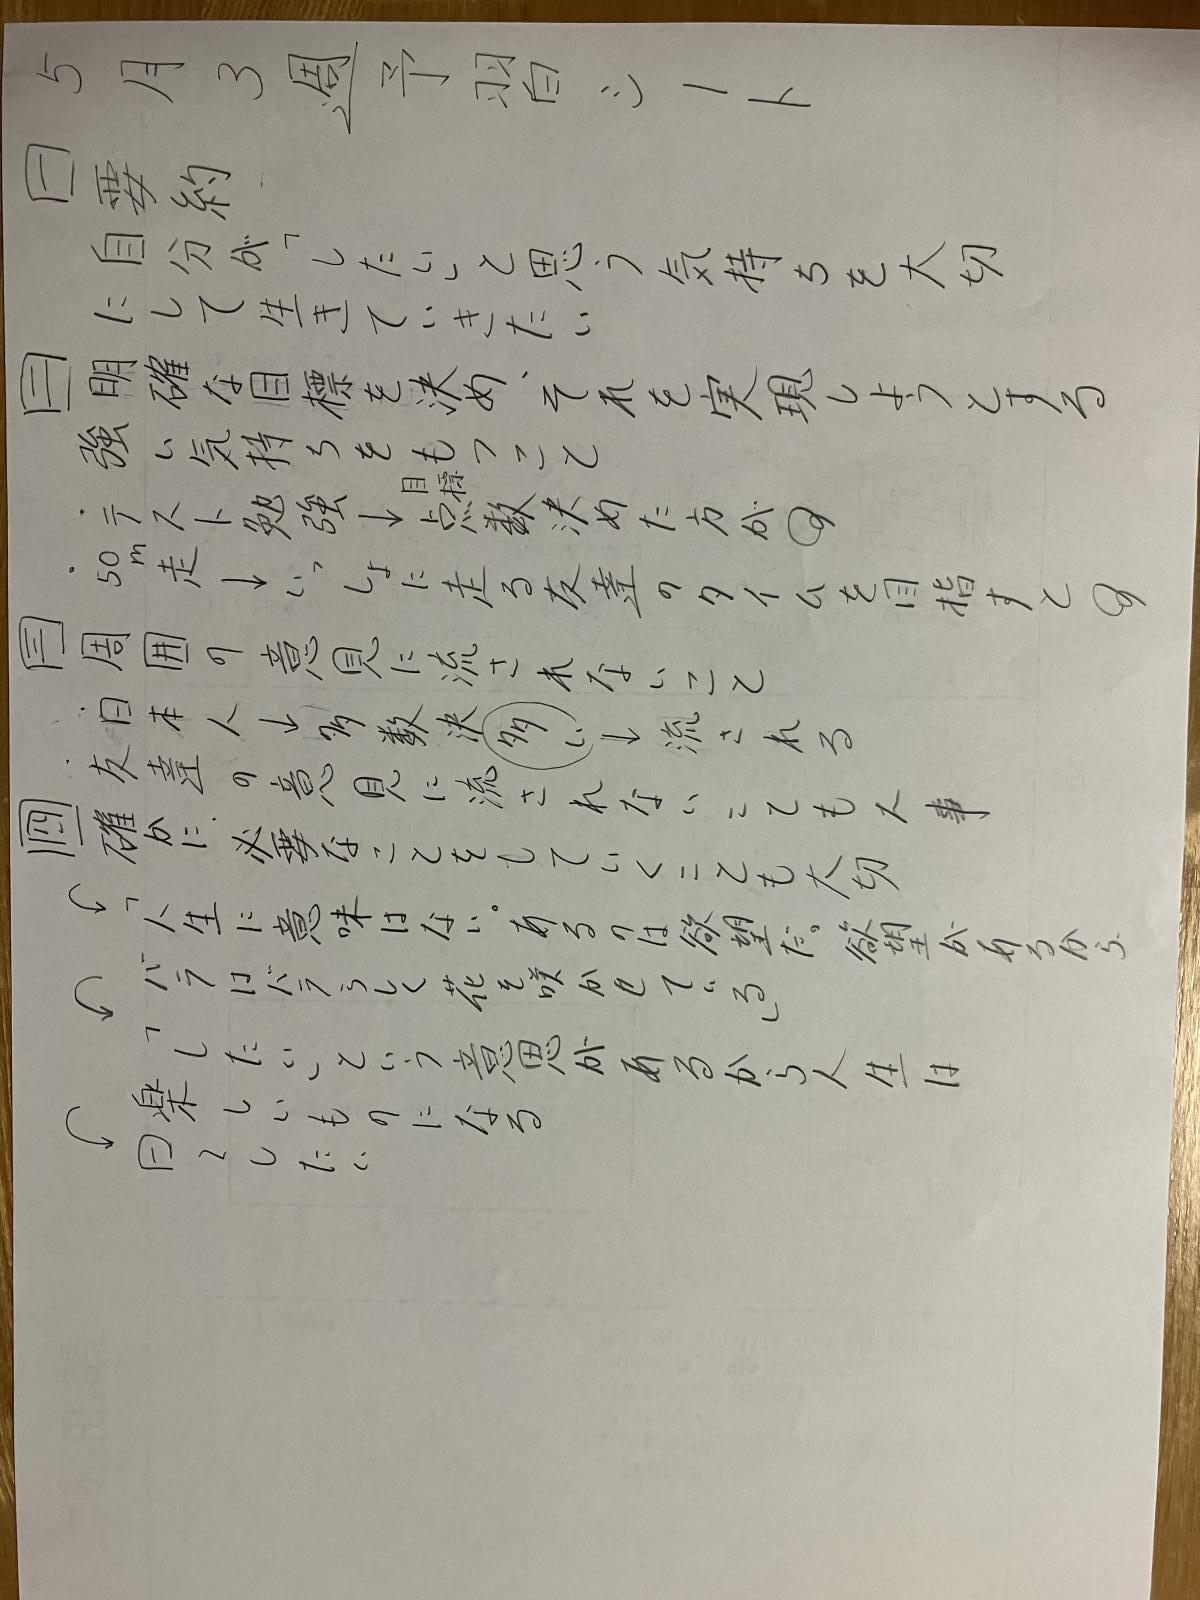 5月3週予習シート
一 要約
自分が「したい」と思う気持ちを大切
にして生きていきたい
二 明確な目標を決め、それを実現しようとする
強い気持ちをもつこと
・テスト勉強→目標点数決めた方が
・50m走→いっしょに走る友達のタイムを目指すと
三 周囲の意見に流されないこと
・日本人→多数決多い→流される
・友達の意見に流されないことも大事
四 確かに必要なことをしていくことも大切
「人生に意味はない。あるのは欲望だ。欲望があるから
バラはバラらしく花を咲かせている」
「したい」という意思があるから人生は
楽しいものになる
したい